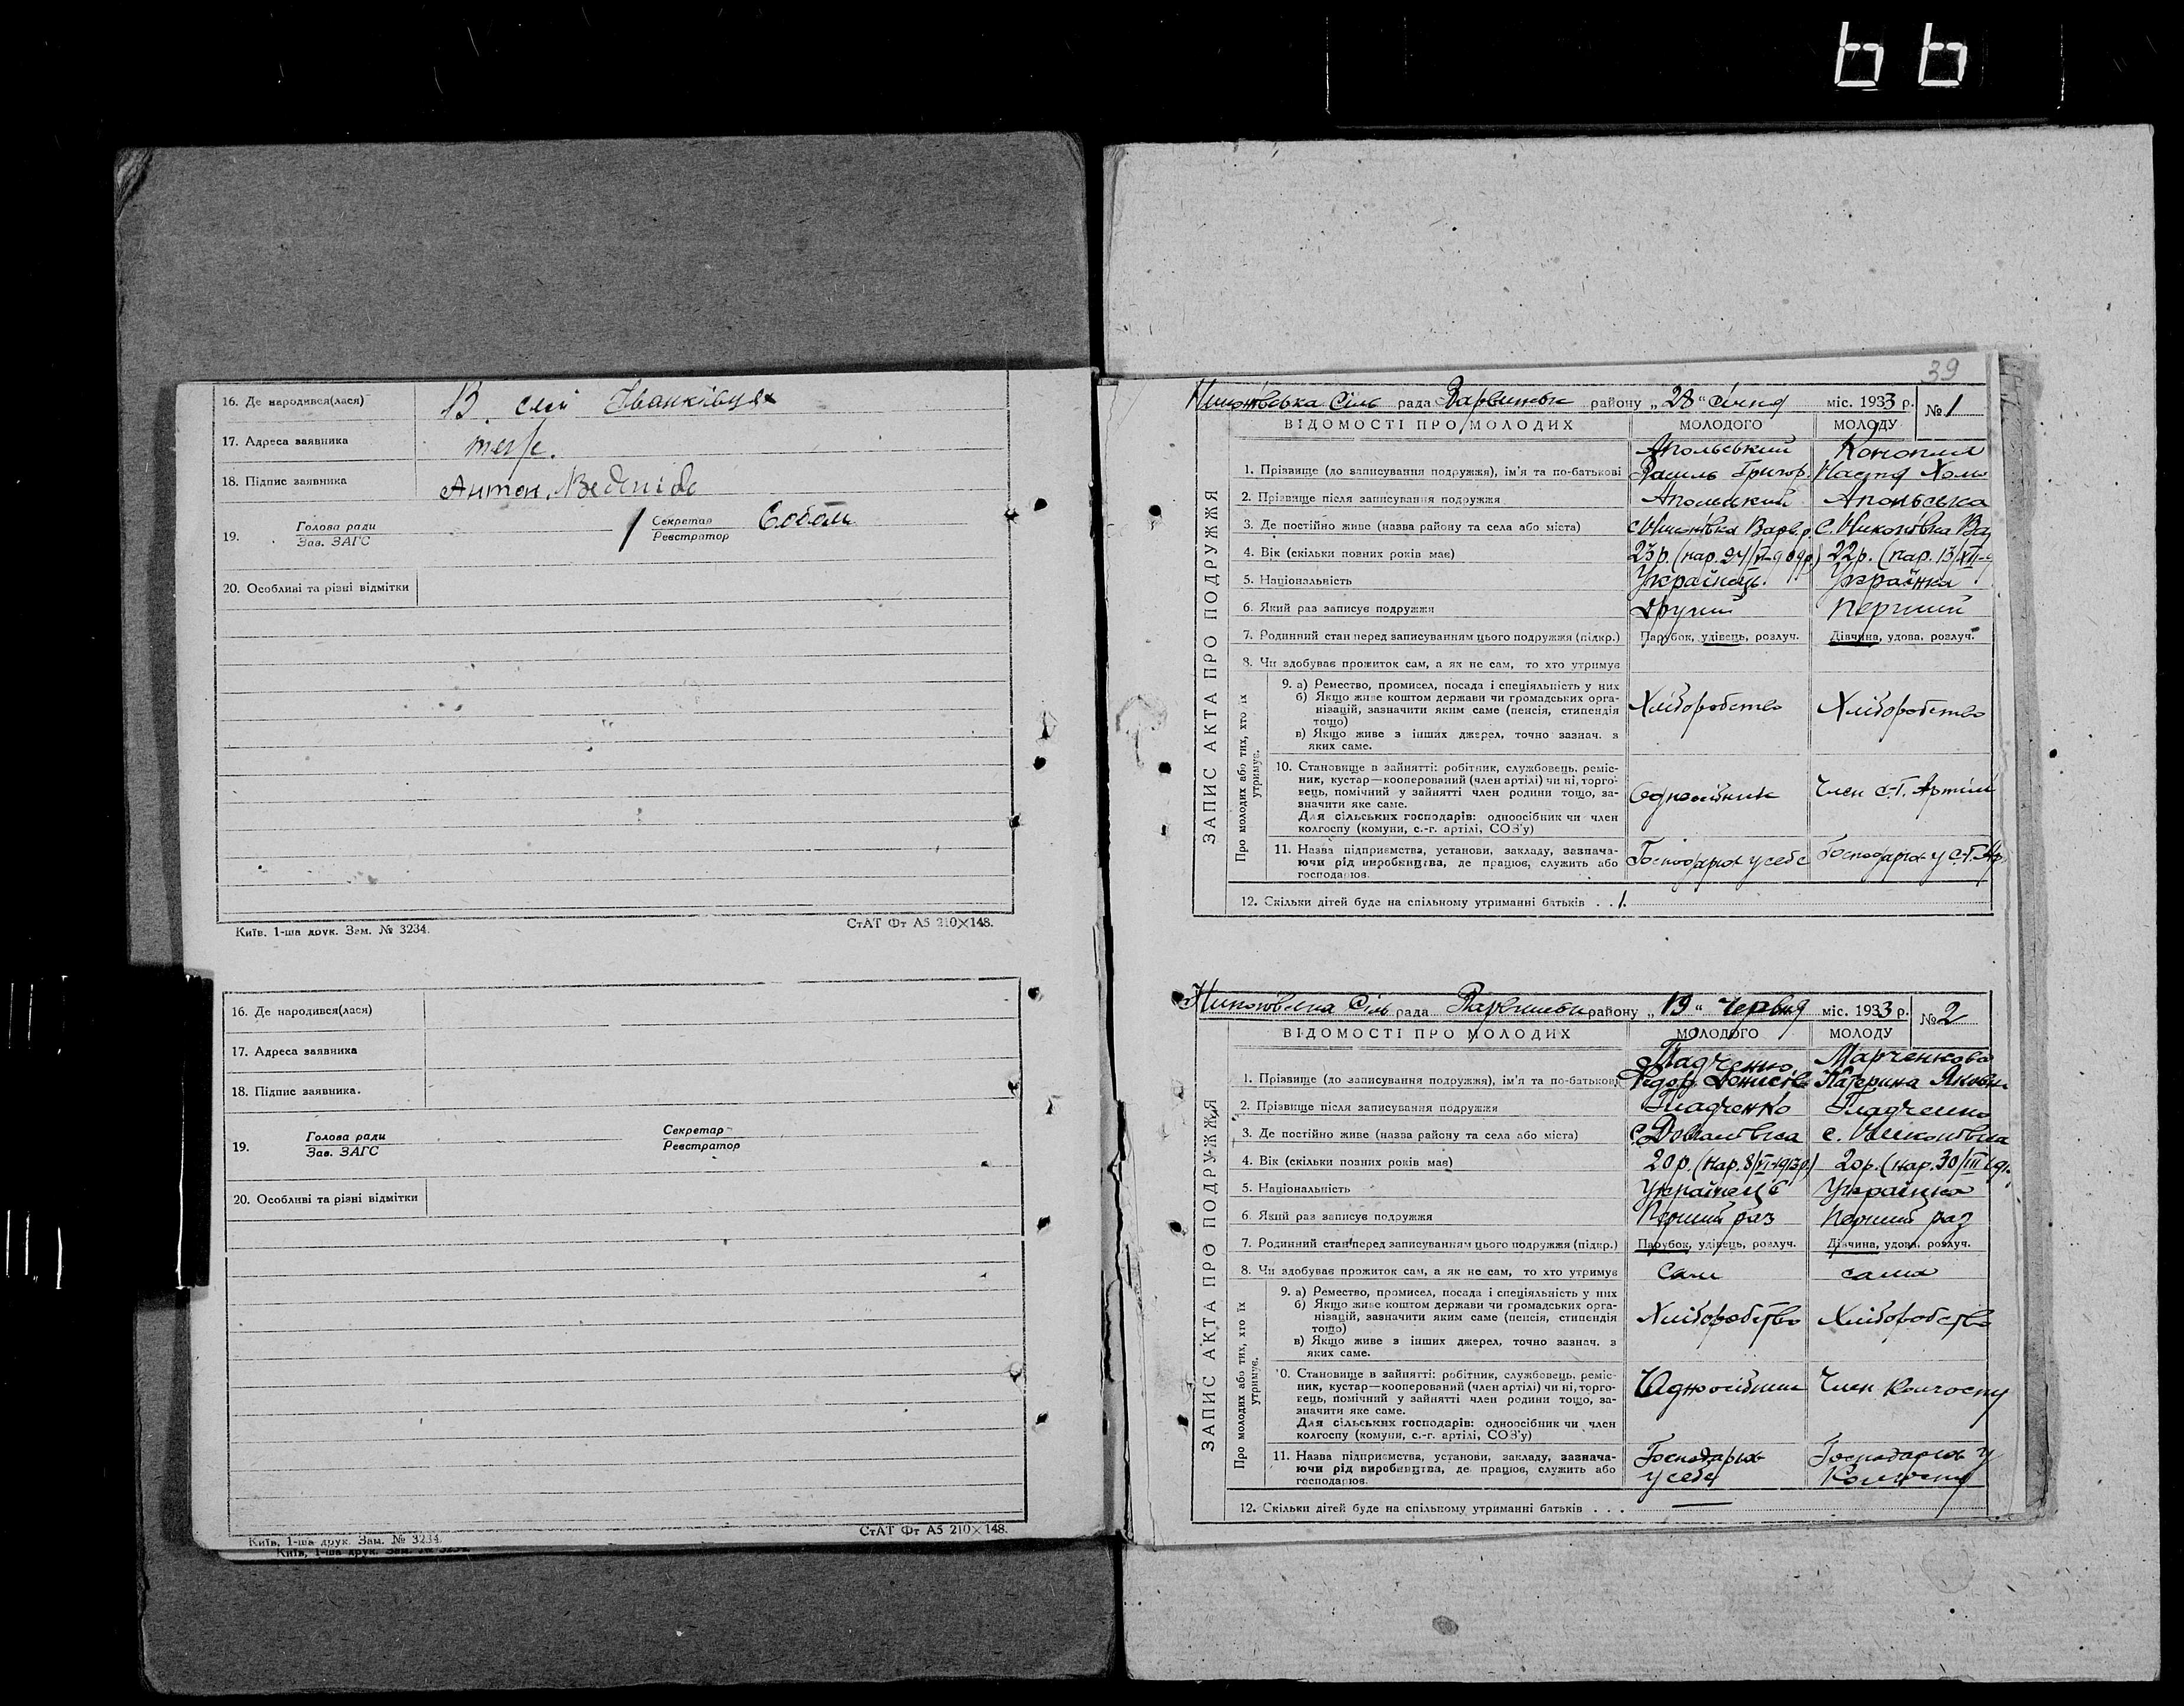 66
16. Де народився(лася) В селі Іванківцях
17. Адреса заявника
18. Підпис заявника Антон
19. Голова ради
Зав. ЗАГС
Секретар
Реєстратор
20. Особливі та різні відмітки
Київ, 1-ша друк. Зам. № 3234.
СтАТ Фт А5 210×148.
16. Де народився(лася)
17. Адреса заявника
18. Підпис заявника.
19. Голова ради
Зав. ЗАГС
Секретар
Реєстратор
20. Особливі та різні відмітки
Київ, 1-ша друк. Зам. № 3234.
СтАТ Фт А5 210×148.
Київ, 1-ша друк. Зам. № 3234.
39
Сіль рада району „28“ січня міс. 1933 р. № 1
ВІДОМОСТІ ПРО МОЛОДИХ МОЛОДОГО МОЛОДУ
ЗАПИС АКТА ПРО ПОДРУЖЖЯ
Апольський
1. Прізвище (до записування подружжя), ім'я та по-батькові Василь Григор.
2. Прізвище після записування подружжя Апольський Апольська
3. Де постійно живе (назва району та села або міста)
4. Вік (скільки повних років має) 23 р. 22 р.
5. Національність Українець Українка
6. Який раз записує подружжя Другий Перший
7. Родинний стан перед записуванням цього подружжя (підкр.) Парубок, удівець, розлуч. Дівчина, удова, розлуч.
8. Чи здобуває прожиток сам, а як не сам, то хто утримує
Про молодих або тих, хто їх утримує.
9. а) Ремество, промисел, посада і спеціяльність у них
б) Якщо живе коштом держави чи громадських орга-
нізацій, зазначити яким саме (пенсія, стипендія
тощо)
в) Якщо живе з інших джерел, точно зазнач. з
яких саме.
Хліборобство Хліборобство
10. Становище в зайнятті: робітник, службовець, реміс-
ник, кустар—кооперований (член артілі) чи ні, торго-
вець, помічний у зайнятті член родини тощо, за-
значити яке саме.
Для сільських господарів: одноосібник чи член
колгоспу (комуни, с.-г. артілі, СОЗ'у)
Одноосібник Член с.-г. Артілі
11. Назва підприємства, установи, закладу, зазнача-
ючи рід виробництва, де працює, служить або
господарює.
Господарює у себе Господарює у с.-г. Ар
12. Скільки дітей буде на спільному утриманні батьків . . 1.
Сіль рада району „19“ червня міс. 1933 р. № 2
ВІДОМОСТІ ПРО МОЛОДИХ МОЛОДОГО МОЛОДУ
ЗАПИС АКТА ПРО ПОДРУЖЖЯ
Гладченко Марченкова
1. Прізвище (до записування подружжя), ім'я та по-батькові Федор Денисів Катерина
2. Прізвище після записування подружжя Гладченко Гладченко
3. Де постійно живе (назва району та села або міста)
4. Вік (скільки повних років має) 20 р. (нар. 8/VI-1913 р.) 20 р. (нар. 30/III 191
5. Національність Українець Українка
6. Який раз записує подружжя Перший раз Перший раз
7. Родинний стан перед записуванням цього подружжя (підкр.) Парубок, удівець, розлуч. Дівчина, удова, розлуч.
8. Чи здобуває прожиток сам, а як не сам, то хто утримує Сам сама
Про молодих або тих, хто їх утримує.
9. а) Ремество, промисел, посада і спеціяльність у них
б) Якщо живе коштом держави чи громадських орга-
нізацій, зазначити яким саме (пенсія, стипендія
тощо)
в) Якщо живе з інших джерел, точно зазнач. з
яких саме.
Хліборобство Хліборобство
10. Становище в зайнятті: робітник, службовець, реміс-
ник, кустар—кооперований (член артілі) чи ні, торго-
вець, помічний у зайнятті член родини тощо, за-
значити яке саме.
Для сільських господарів: одноосібник чи член
колгоспу (комуни, с.-г. артілі, СОЗ'у)
Одноосібник Член Колгоспу
11. Назва підприємства, установи, закладу, зазнача-
ючи рід виробництва, де працює, служить або
господарює.
Господарює у себе Господарює у Колгоспі
12. Скільки дітей буде на спільному утриманні батьків . . . —